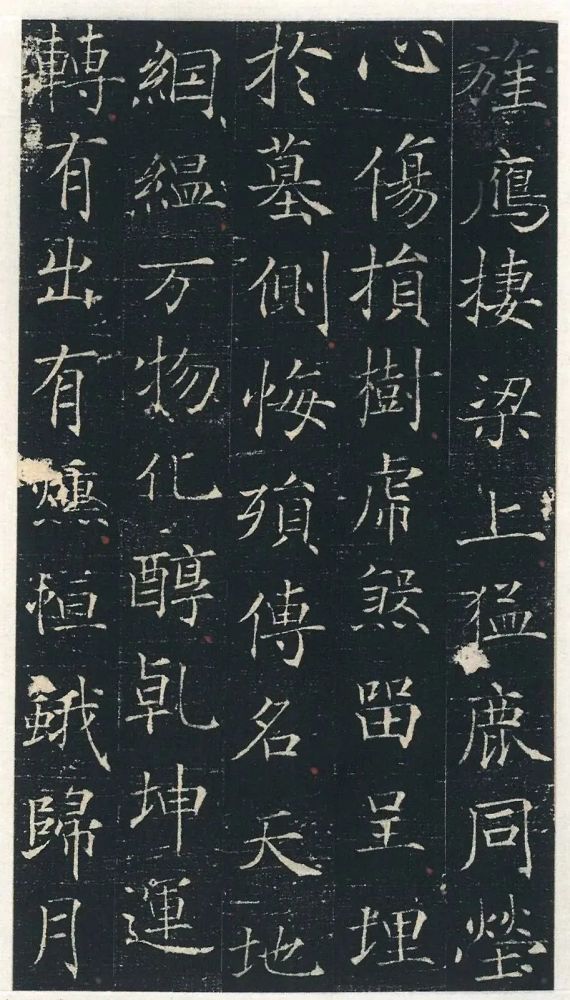 旌鴈捿梁上猛鹿同塋
心傷損樹虎煞留呈埋
於墓側悔殞傳名天地
絪緼万物化醇乹坤運
轉有出有恒蛾歸月